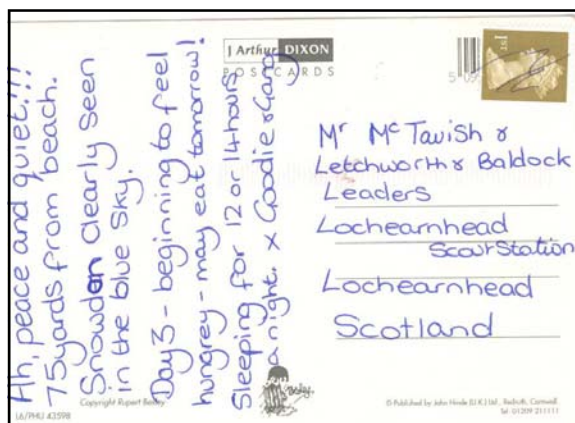 Ah, peace and quiet!!!
75yards from beach.
Snowdon Clearly seen
in the blue sky.
Day 3 - beginning to feel
hungrey - may eat tomorrow!
Sleeping for 12 or 14 hours
a night. x Goodie & Gang
J Arthur DIXON
POSTCARDS
1ST
Mr McTavish &
Letchworth & Baldock
Leaders
Lochearnhead
Scout Station
Lochearnhead
Scotland
Copyright Rupert Besley
L6/PHU 43598
Besley.
© Published by John Hinde (U.K.) Ltd., Redruth, Cornwall.
Tel: 01209 211111